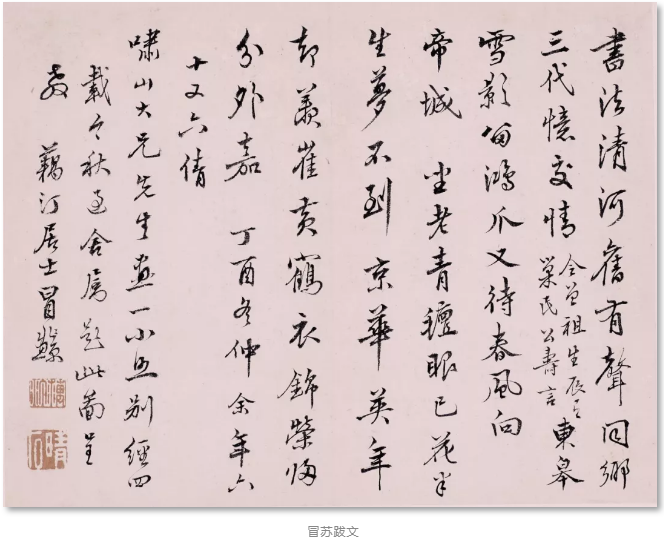 書法清河舊有聲同鄉
三代憶交情
令曾祖生辰乞
巢民公壽言
東皋
雪影留鴻爪又待春風向
帝城 坐老青氈眼已花半
生夢不到京華英年
却羨崔黃鶴衣錦榮歸
分外嘉 丁酉冬仲余年六
十又六倩
嘯山大兄先生畫一小照别經四
載今秋過舍屬題此圖呈
教 藕汀居士冒蘇
冒苏跋文